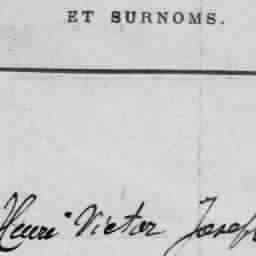 ET SURNOMS.
Henri Victor Joseph